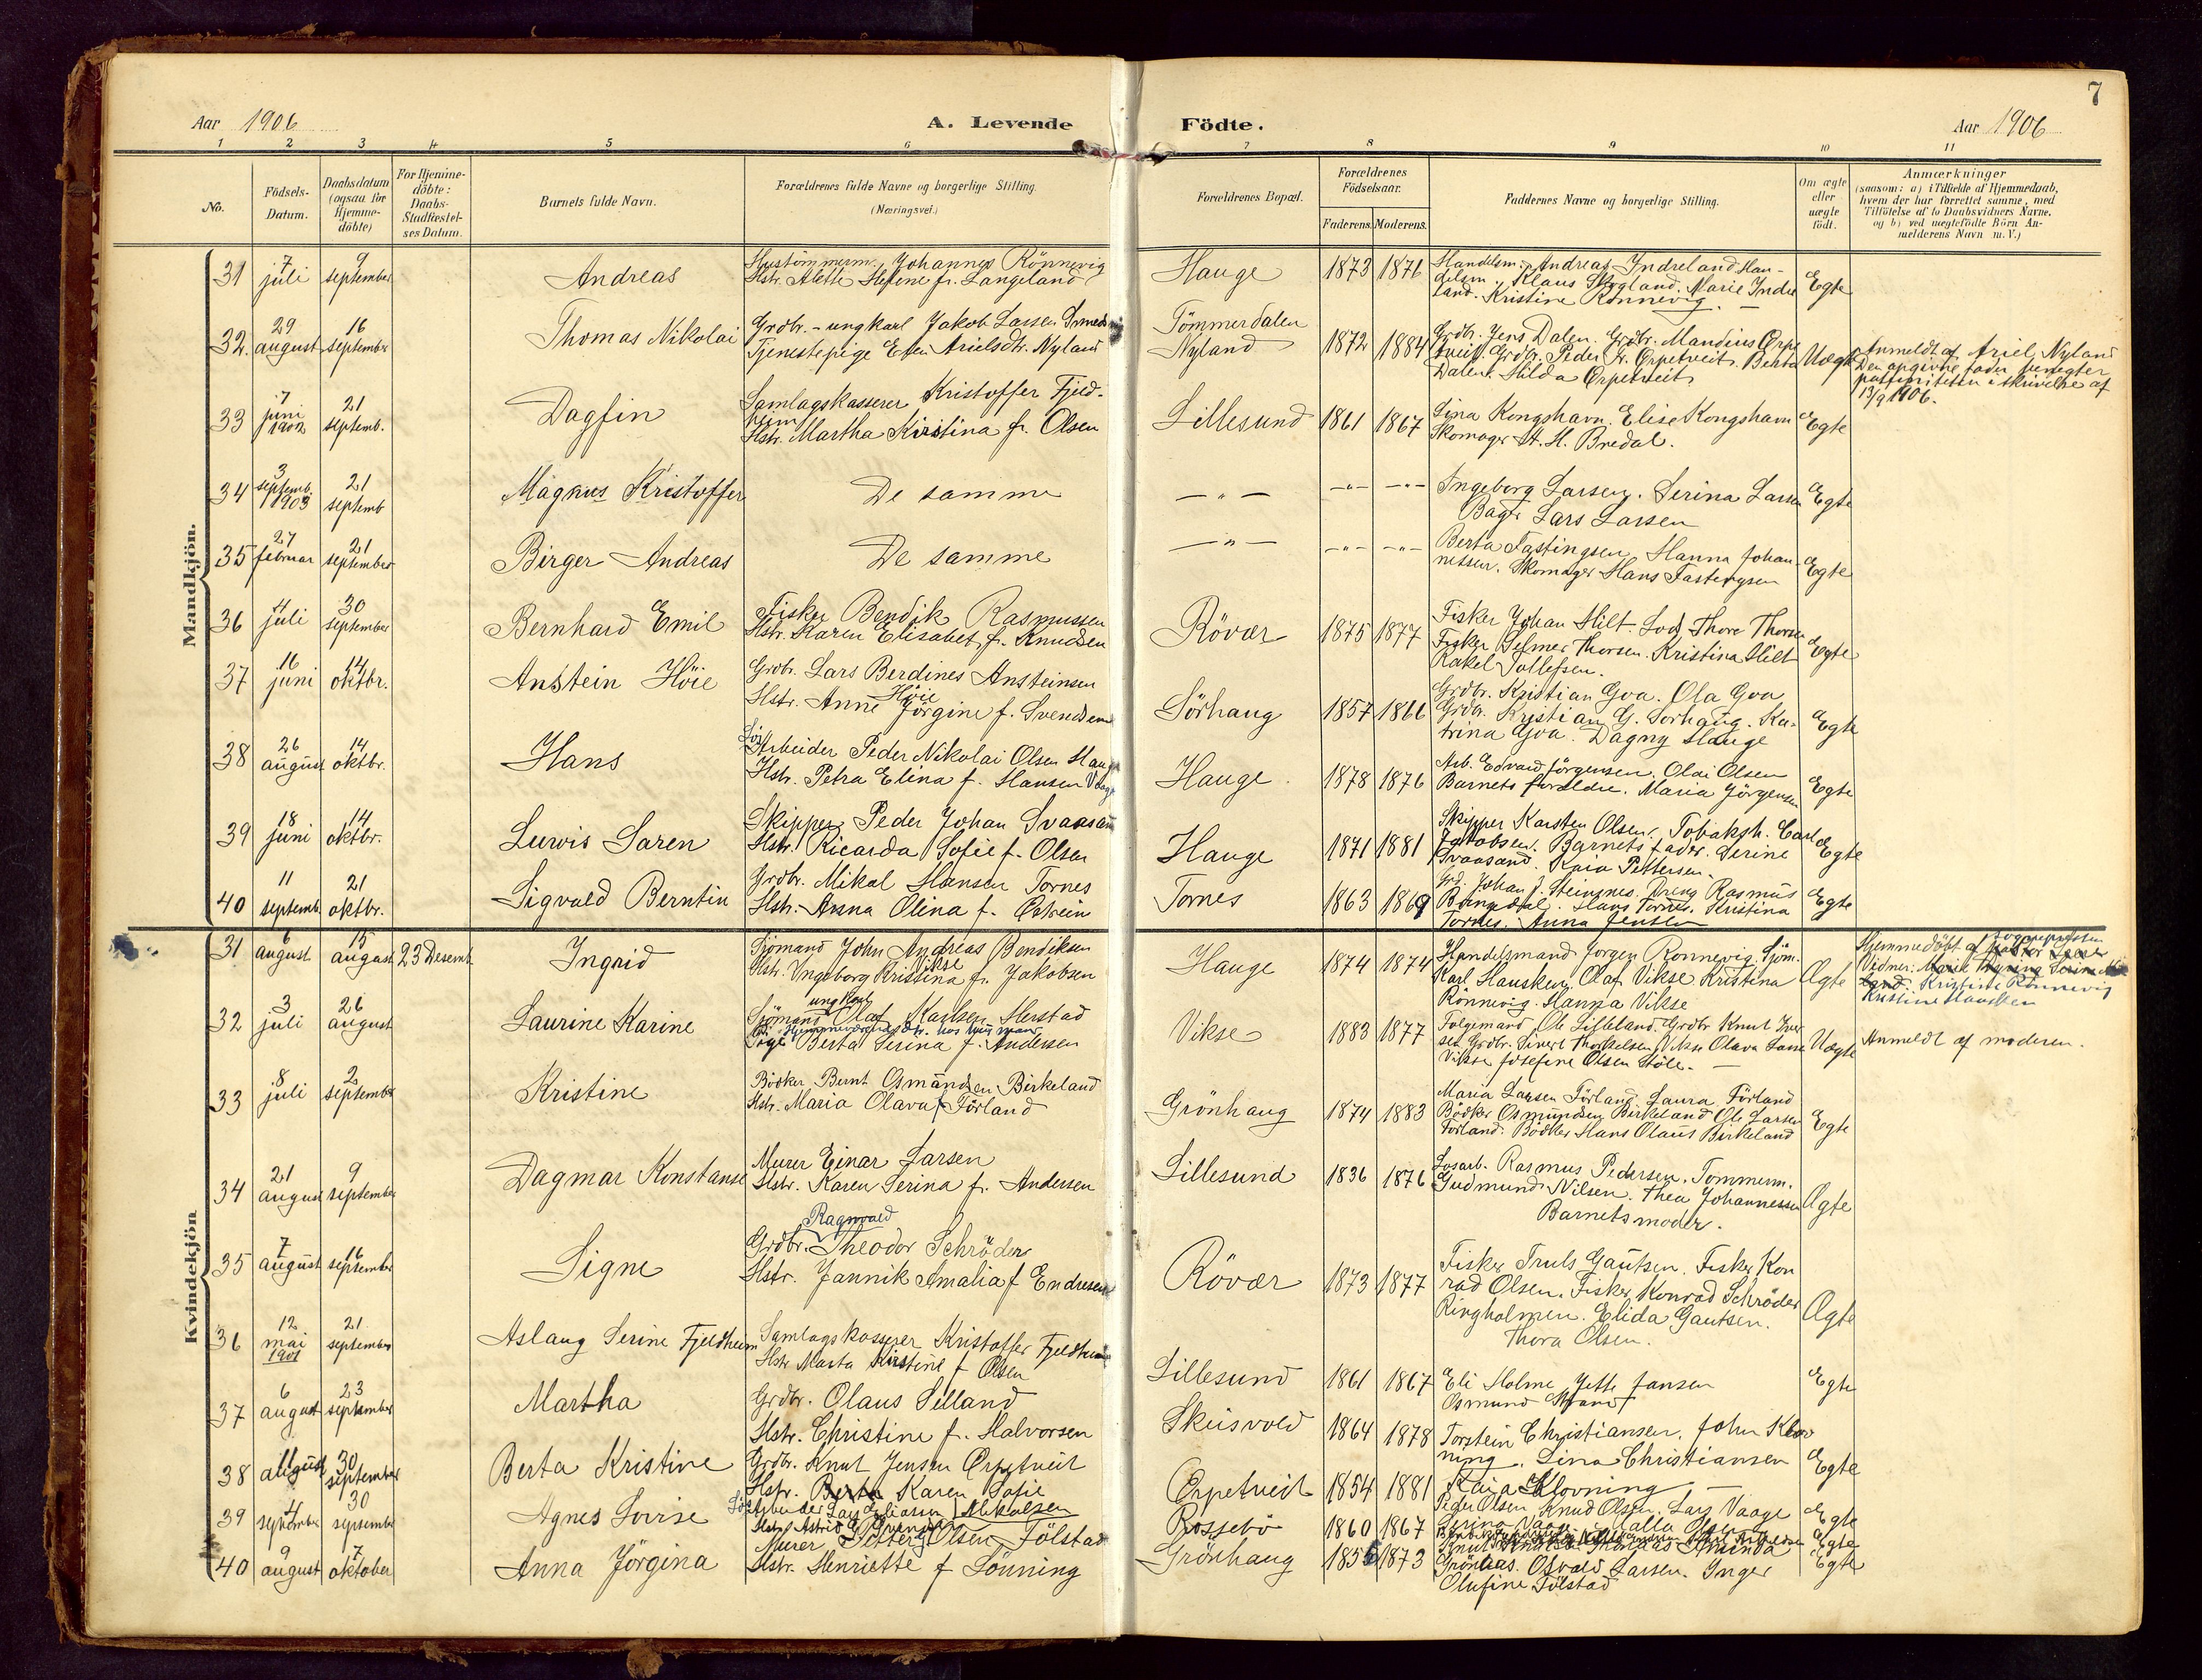 7
Aar 1906 A. Levende Födte. Aar 1906
1 2 3 4 5 6 7 8 9 10 11
No. Födsels-Datum. Daabsdatum (ogsaa for Hjemmedöbte) For Hjemmedöbte: Daabs-Stadfæstelses Datum. Barnets fulde Navn. Forældrenes fulde Navne og borgerlige Stilling. (Næringsvei.) Forældrenes Bopæl. Forældrenes Födselsaar. Faderens. Moderens. Faddernes Navne og borgerlige Stilling. Om ægte eller uægte födt. Anmærkninger (saasom: a) i Tilfælde af Hjemmedaab, hvem der har forrettet samme, med Tilföielse af to Daabsvidners Navne, og b) ved uægtefödte Börn Anmelderens Navn m. V.)
Mandkjön.
31 7 juli 9 september Andreas Hustömmerm. Johannes Rönnevig
Hstr. Alette Stefine f. Langeland
Hauge 1873 1876 Handelsm. Andreas Indreland Han-
delsm. Klaus Skogland. Marie Indre
land. Kristine Rönnevig. Egte
32. 29 august 16 september Thomas Nikolai Grdbr.-ungkarl Jakob Lassen
Tjenestepige Arielsdtr. Nyland
Tömmerdalen
Nyland 1872 1884 Grdbr. Jens Dalen. Grdbr. Mandius Örpe
tveit Grdbr. Peder Örpetveit. Berta
Dalen. Hilda Örpetveit Uægte Anmeldt af Ariel Nyland
Den opgivne fader benegter
paterniteten i skrivelse af
13/9 1906.
33 7 juni 1902 21 septemb. Dagfin Samlagskasserer Kristoffer Fjeld-
heim
Hstr. Martha Kirstina f. Olsen
Lillesund 1861 1867 Lina Kongshavn. Elise Kongshavn
Skomager H. H. Bredal. Egte
34 3 septemb. 1903 21 septemb Magnus Kristoffer De samme
— " — — " — — " — Ingeborg Larsen. Serina Larsen
Bager Lars Larsen Egte
35 27 februar 21 september Birger Andreas De samme
— " — — " — — " — Berta Fastingsen Hanna Johan-
nessen. Skomager Hans Fastingsen Egte
36 4 juli 30 september Bernhard Emil Fisker Bendik Rasmussen
Hstr. Karen Elisabet f. Knudsen
Rövær 1875 1877 Fisker Johan Hilt. Lods Thore Thorsen
Fisker Selmer Thorsen. Kristina Hilt
Rakel Tollefsen. Egte
37 16 juni 14 oktbr. Anstein Höie Grdbr. Lars Berdines Ansteinsen
Höie
Hstr. Anne Jörgine f. Svendsen
Sörhaug 1857 1866 Grdbr. Kristian Goa. Ola Goa
Grdbr. Kristian G. Sorhaug. Ka-
trina Goa. Dagny Hauge Egte
38 26 august 14 oktbr. Hans Arbeider Peder Nikolai Olsen Hauge
Hstr. Petra Elina f. Hansen Vaage
Hauge 1878 1876 Arb. Edvard Jörgensen. Olai Olsen
Barnets foreldre. Maria Jörgensen Egte
39 18 juni 14 oktbr. Lurvis Saren Skipper Peder Johan Svaasand
Hstr. Ricarda Sofie f. Olsen
Hauge 1871 1881 Skipper Karsten Olsen. Tobaksh. Carl
Jakobsen. Barnets fader. Serine
Svaasand. Kaia Pettersen. Egte
40 11 septemb. 21 oktbr. Sigvald Berntin Grdbr. Mikal Hansen Tornes
Hstr. Anna Olina f. Östrein
Tornes 1863 1869 Grd. Johan J. Steinsnes. Dreng Rasmus
Hans Tornes. Kristina
Tornes. Anna Jensen Egte
Kvindekjön
31 6 august 15 august 23 Desemb. Ingrid Sjömand John Andreas Bendiksen
Vikse
Hstr. Ingeborg Kristina f. Jakobsen
Hauge 1874 1874 Handelsmand Jorgen Ronnevig. Sjöm.
Karl Hausken Olaf Vikse Kristina
Rönnevig. Hanna Vikse Ægte Hjemmedöbt af
Vidner:
Kristine Rönnevig
Kristine Hausken
32 3 juli 26 august Laurine Karine ungkarl
Sjömand Olaf Karlsen Herstad
Pige Berta Serina f. Andersen
Vikse 1883 1877 Folgemand Ole Lilleland. Grdbr Knut Iver
sen Grdbr. Sivert Thorkelsen Vikse Olava Larse
Vikse Josefine Olsen Stöle. — Uægte Anmeldt af moderen.
33 8 juli 2 september Kristine Bödker Bernt Osmundsen Birkeland
Hstr. Maria Olava f. Förland
Grönhaug 1874 1883 Maria Larsen Förland. Laura Förland
Bödker Osmundsen Birkeland Ole Larsen
Förland. Bödker Hans Olaus Birkeland Egte
34 21 august 9 september Dagmar Konstanse Murer Einar Larsen
Hstr. Karen Serina f. Andersen
Lillesund 1836 1876 Losarb. Rasmus Pedersen. Tommerm.
Gudmund Nilsen. Thea Johannessen
Barnets moder. Ægte
35 7 august 16 september Signe Ragnvald
Grdbr. Theodor Schröder
Hstr. Jannik Amalia f Endresen
Rövær 1873 1877 Fisker Truls Gautsen. Fisker Kon
rad Olsen. Fisker Konrad Schröder
Ringholmen. Elida Gautsen.
Thora Olsen. Ægte
36 12 mai 1901 21 september Aslaug Serine Fjeldheim Samlagskasserer Kristoffer Fjeldheim
Hstr Marta Kirstine f Olsen
Lillesund 1861 1867 Eli Holme Jette Jansen
Osmund Egte
37 6 august 23 september Martha Grdbr. Olaus Silland
Hstr. Christine f. Halvorsen
Skeisvold 1864 1878 Torstein Christiansen. John Klov
ning. Lina Christiansen
Kaia Klovning — Egte
38 11 august 30 september Berta Kristine Grdbr. Knut Jensen Örpetveit
Hstr. Karen Sofie
Örpetveit 1854 1881 Peder Olsen Knud Olsen. Lars Vaage
Serina Vaage Egte
39 4 september 30 september Agnes Lovise Arbeider Lars Eliasen Mikalsen
Hstr. Astrid
Rossebö 1860 1867 Egte
40 9 august 7 oktober Anna Jörgina Murer Petter Olsen Fölstad
Hstr. Henriette f Lönning
Grönhaug 1855 1873 Grönaas. Osvald Larsen. Inger
Olufine Fölstad Egte